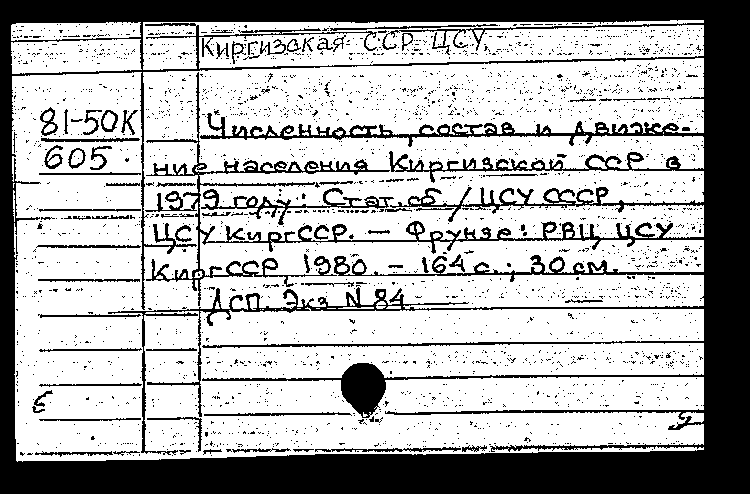 Киргизская ССР. ЦСУ.
81-50К
605.
Численность, состав и движе-
ние населения Киргизской ССР в
1979 году: Стат. сб. / ЦСУ СССР,
ЦСУ КиргССР. — Фрунзе: РВЦ ЦСУ
КиргССР, 1980. - 164 с.; 30 см.
ДСП. Экз N 84.